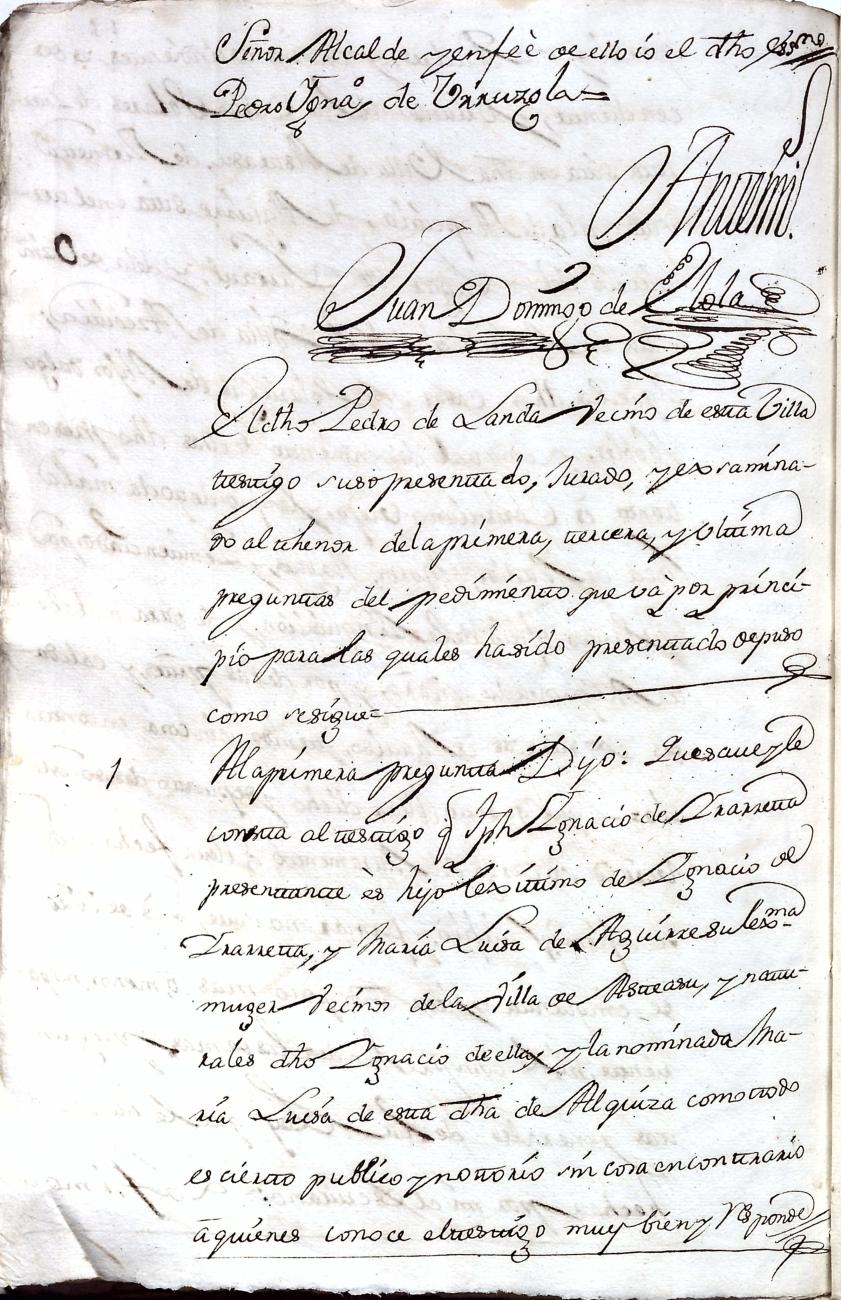 Señor Alcalde y en feè de ello io el dho Essno
Pedro Ignaº de Urruzola =
Antemi
Juan Domingo de Elola
El dho Pedro de Landa Vecino de esta Villa
testigo suso presentado, Jurado, y exsamina-
do al thenor de la primera, tercera, y Ultima
preguntas del pedimiento que và por princi-
pio para las quales ha sido presentado depuso
como se sigue =
1 A la primera pregunta Dijo: Que save y le
consta al testigo q Jph Ygnacio de Irarreta
presentante ès hijo lexitimo de Ygnacio de
Irarreta, y Maria Luisa de Aguirre su lexma
muger Vecinos de la Villa de Asteasu, y natu-
rales dho Ygnacio de ella, y la nominada Ma-
ria Luisa de esta dha de Alquiza como todo
es cierto publico y notorio sin cosa en contrario
à quienes conoce el testigo muy bien y responde